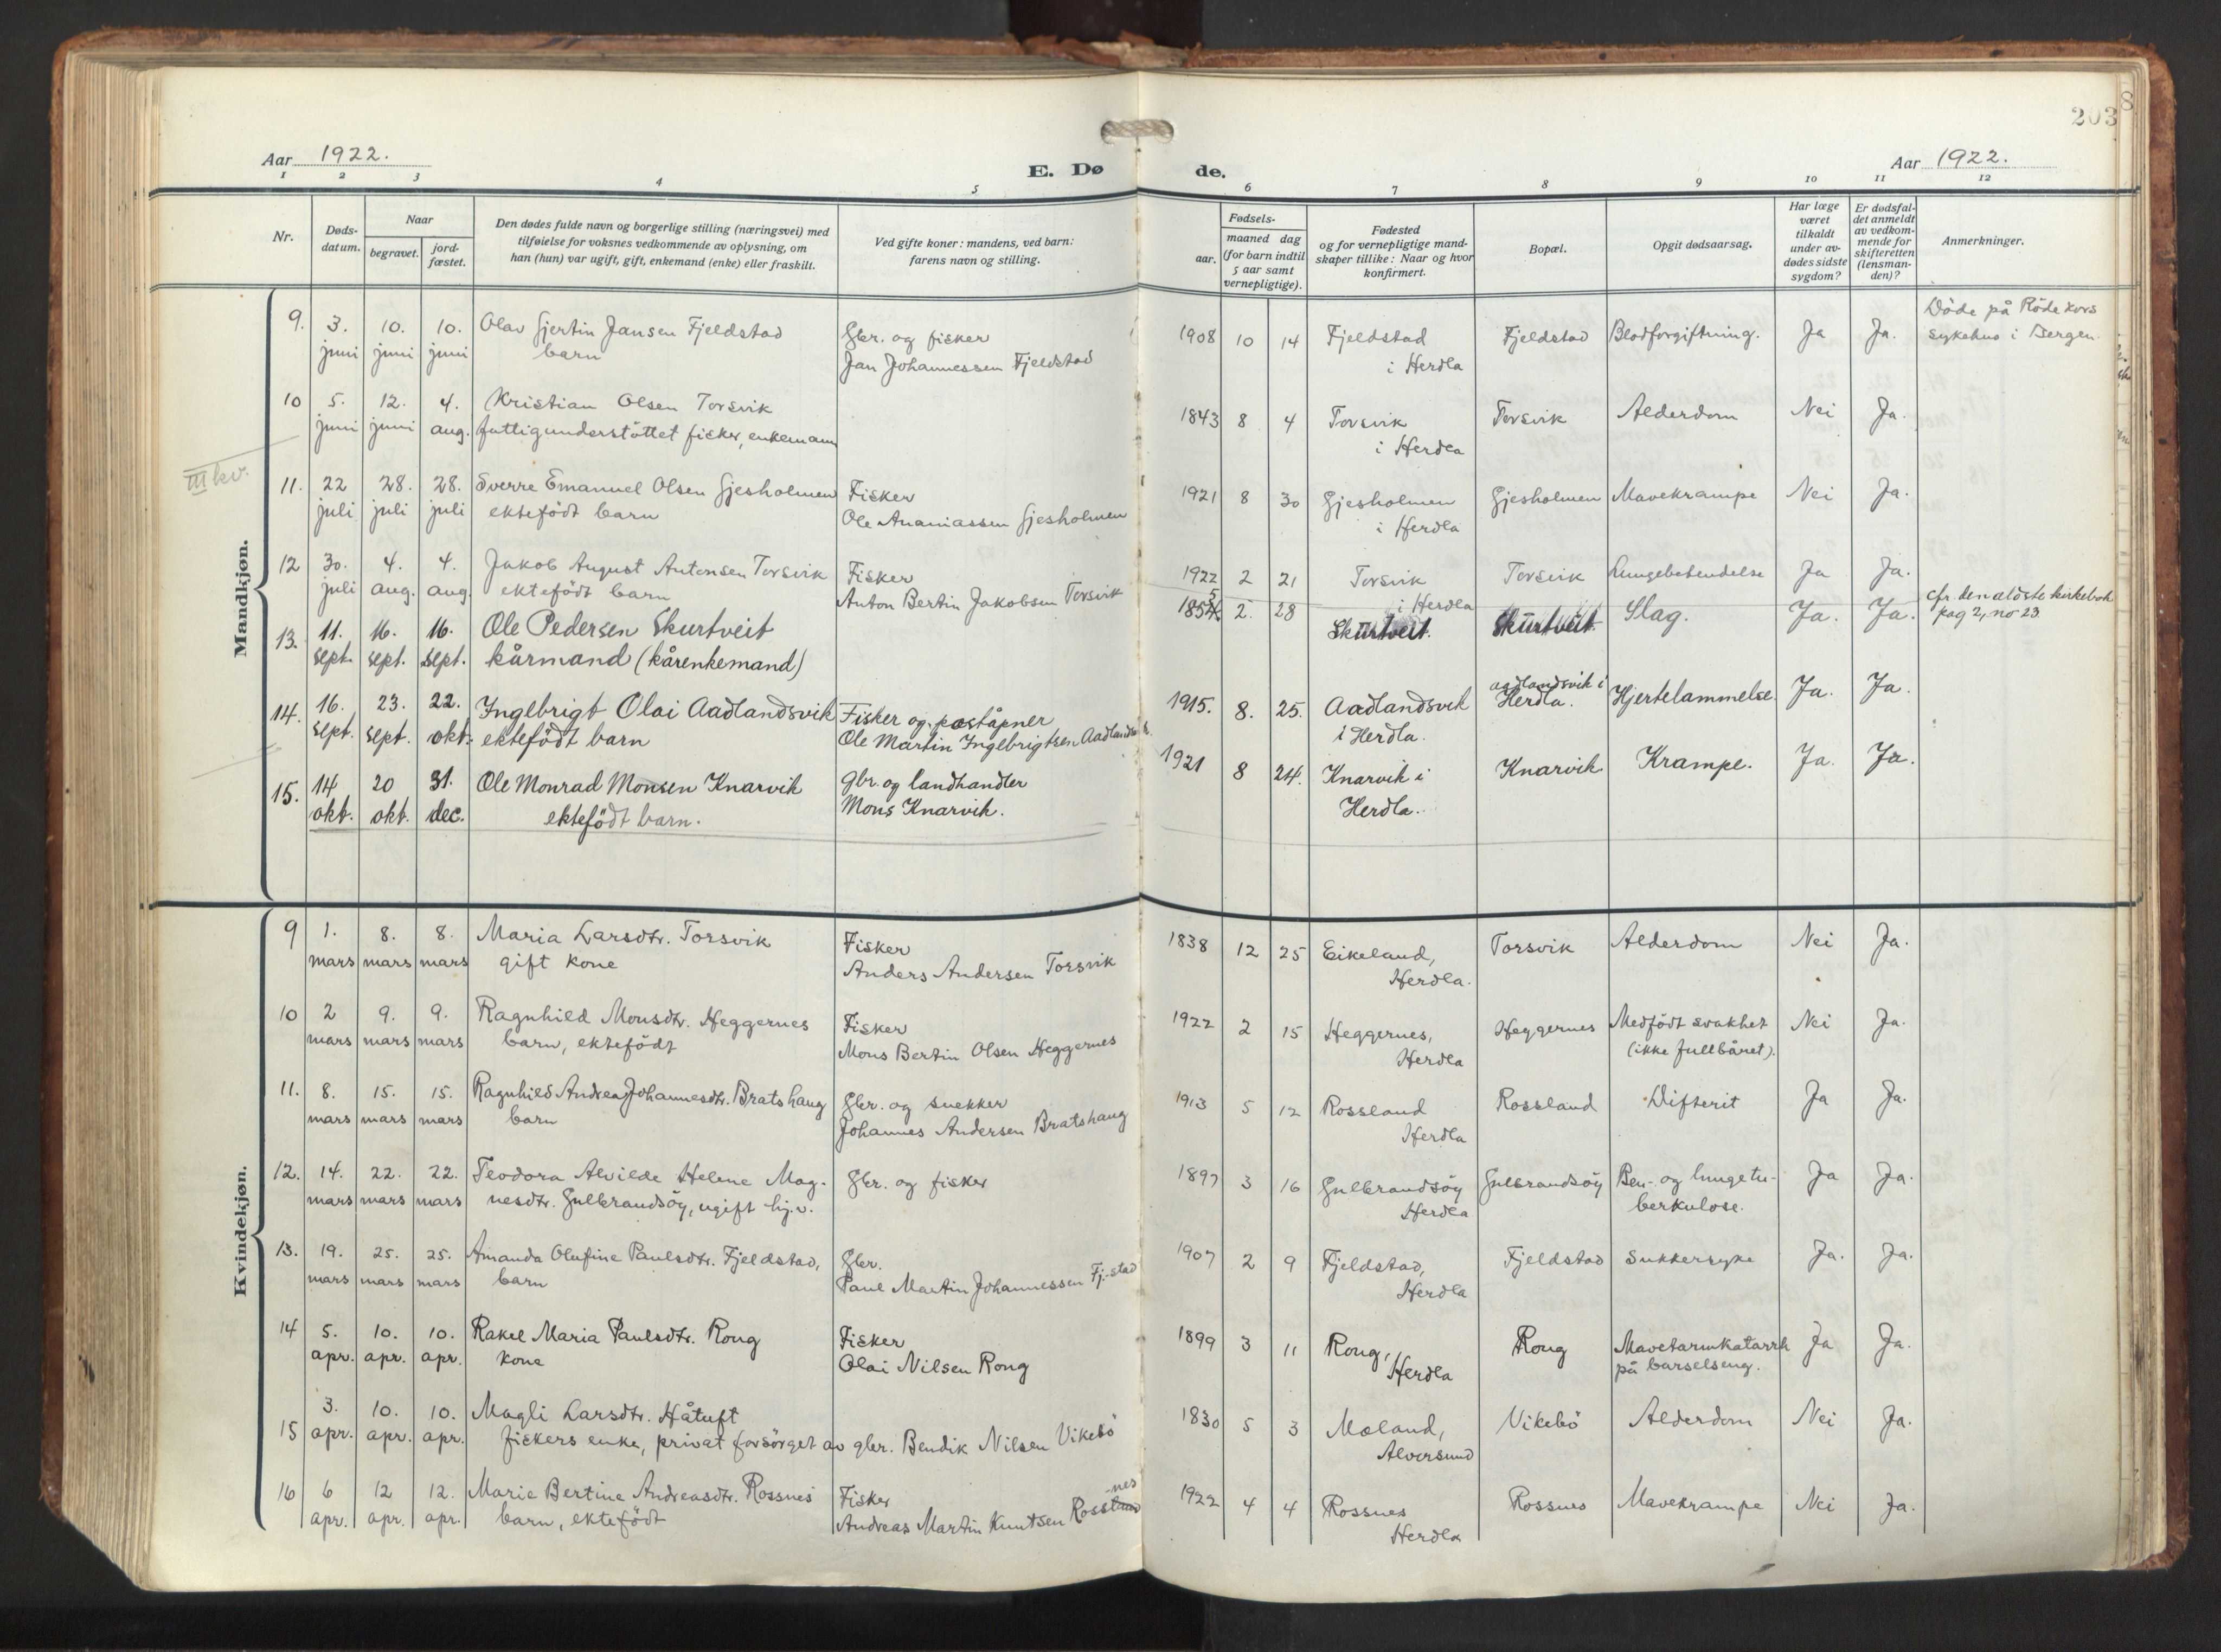 203
8
Aar 1922.
E. Døde.
Aar 1922.
1 2 3 4 5 6 7 8 9 10 11 12
Nr.
Døds-datum.
Naar
begravet.
jord-fæstet.
Den dødes fulde navn og borgerlige stilling (næringsvei) med
tilføielse for voksnes vedkommende av oplysning, om
han (hun) var ugift, gift, enkemand (enke) eller fraskilt.
Ved gifte koner: mandens, ved barn:
farens navn og stilling.
Fødsels-
aar.
maaned dag
(for barn indtil
5 aar samt
vernepligtige).
Fødested
og for vernepligtige mand-
skaper tillike: Naar og hvor
konfirmert.
Bopæl.
Opgit dødsaarsag.
Har læge
været
tilkaldt
under av-
dødes sidste
sygdom?
Er dødsfal-
det anmeldt
av vedkom-
mende for
skifteretten
(lensman-
den)?
Anmerkninger.
Mandkjøn.
9. 3. 10. 10. Olav Gjertin Jansen Fjeldstad Gbr. og fisker 1908 10 14 Fjeldstad Fjeldstad Blodforgiftning. Ja Ja. Døde på Röde kors
juni juni juni barn Jan Johannessen Fjeldstad i Herdla sykehus i Bergen.
10 5. 12. 4. Kristian Olsen Torsvik 1843 8 4 Torsvik Torsvik Alderdom Nei Ja.
juni juni aug. fattigunderstöttet fisker, enkemann i Herdla
III kv.
11. 22 28. 28. Sverre Emanuel Olsen Gjesholmen Fisker 1921 8 30 Gjesholmen Gjesholmen Mavekrampe Nei Ja.
juli juli juli ektefödt barn Ole Ananiassen Gjesholmen i Herdla
12 30. 4. 4. Jakob August Antonsen Torsvik Fisker 1922 2 21 Torsvik Torsvik Lungebetendelse Ja Ja.
juli aug. aug. ektefödt barn Anton Bertin Jakobsen Torsvik i Herdla
13. 11. 16. 16. Ole Pedersen Skurtveit 1854 5 2. 28 Skurtveit. Skurtveit Slag. Ja. Ja. cfr. den ældste kirkebok
sept. sept. sept. kårmand (kårenkemand) pag 2, no 23
14. 16. 23. 22. Ingebrigt Olai Aadlandsvik Fisker og poståpner 1915. 8. 25. Aadlandsvik aadlandsvik i Herdla. Hjertelammelse. Ja. Ja.
sept. sept. okt. ektefödt barn Ole Martin Ingebrigtsen Aadlandsvik. i Herdla.
15. 14 20 31. Ole Monrad Monsen Knarvik Gbr. og landhandler 1921 8 24. Knarvik i Knarvik. Krampe. Ja. Ja.
okt. okt. dec. ektefödt barn. Mons Knarvik. Herdla.
Kvindekjøn.
9 1. 8. 8. Maria Larsdtr. Torsvik Fisker 1838 12 25 Eikeland, Torsvik Alderdom Nei Ja.
mars mars mars gift kone Anders Andersen Torsvik Herdla.
10 2 9. 9. Ragnhild Monsdtr. Heggernes Fisker 1922 2 15 Heggernes, Heggernes Medfödt svakhet Nei Ja.
mars mars mars barn, ektefödt Mons Bertin Olsen Heggernes Herdla (ikke fullbåret).
11. 8. 15. 15. Ragnhild Andrea Johannesdtr. Bratshaug Gbr. og snekker 1913 5 12 Rossland Rossland Difterit Ja Ja.
mars mars mars barn Johannes Andersen Bratshaug Herdla
12. 14. 22. 22. Teodora Alvilde Helene Mag- Gbr. og fisker 1897 3 16 Gulbrandsöy Gulbrandsöy Ben- og lungetu- Ja Ja.
mars mars mars nesdtr. Gulbrandsöy, ugift hj.v. Herdla berkulose.
13. 19. 25. 25. Amanda Olufine Paulsdtr. Fjeldstad, Gbr. 1907 2 9 Fjeldstad, Fjeldstad Sukkersyke Ja. Ja.
mars mars mars barn Paul Martin Johannessen Fj.-stad Herdla
14 5. 10. 10. Rakel Maria Paulsdtr. Rong Fisker 1899 3 11 Rong, Rong Mavetarmkatarrh Ja Ja.
apr. apr. apr. kone Olai Nilsen Rong Herdla på barselseng.
15 3. 10. 10. Magli Larsdtr. Håtuft 1830 5 3 Moland, Vikebö Alderdom Nei Ja.
apr. apr. apr. fiskers enke, privat forsörget av gbr. Bendik Nilsen Vikebö Alversund
16 6 12 12. Marie Bertine Andreasdtr. Rossnes Fisker 1922 4 4 Rossnes Rossnes Mavekrampe Nei Ja.
apr. apr. apr. barn, ektefödt Andreas Martin Knutsen Rossland -nes Herdla